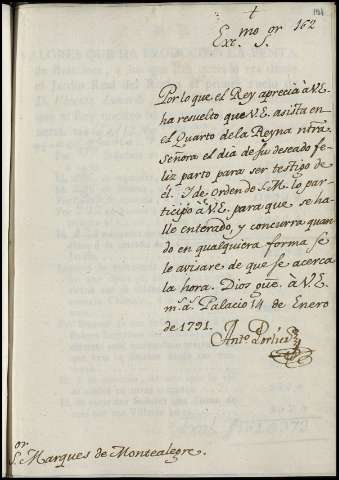 194
162
†
Exc.mo S.or
Por lo que el Rey aprecia à V.E.
ha resuelto que V.E. asista en
el Quarto de la Reyna ntra.
Señora el dia de su deseado fe-
liz parto para ser testigo de
él. Y de orden de S.M. lo par-
ticipo à V.E. para que se ha-
lle enterado, y concurra quan-
do en qualquiera forma se
le avisare de que se acerca
la hora. Dios gue. à V.E.
m.s a.s Palacio 14 de Enero
de 1791.
Ant.o Porlier
S.or Marques de Montealegre.